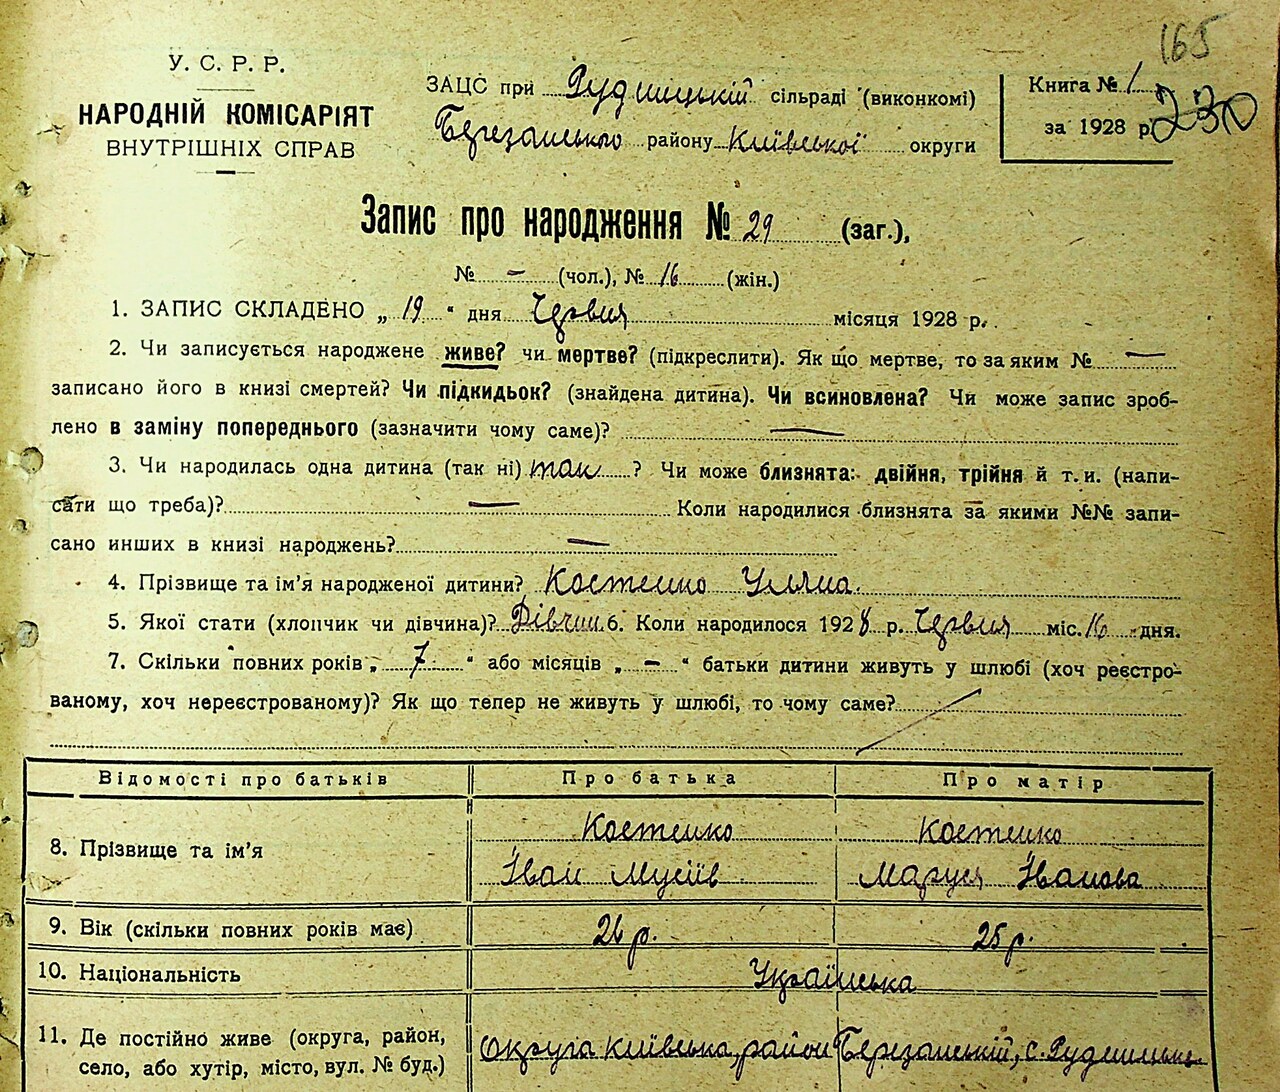 165
У. С. Р. Р.
НАРОДНІЙ КОМІСАРІЯТ
ВНУТРІШНІХ СПРАВ
ЗАЦС при Рудницькій сільраді (виконкомі)
Березанського району Київської округи
Книга № 1
за 1928 р. 230
Запис про народження № 29 (заг.),
№ — (чол.), № 16 (жін.)
1. ЗАПИС СКЛАДЕНО „ 19 “ дня Червня місяця 1928 р.
2. Чи записується народжене живе? чи мертве? (підкреслити). Як що мертве, то за яким № —
записано його в книзі смертей? Чи підкидьок? (знайдена дитина). Чи всиновлена? Чи може запис зроб-
лено в заміну попереднього (зазначити чому саме)? —
3. Чи народилась одна дитина (так ні) так ? Чи може близнята: двійня, трійня й т. и. (напи-
сати що треба)? — Коли народилися близнята за якими №№ запи-
сано инших в книзі народжень? —
4. Прізвище та ім’я народженої дитини? Костенко Уляна.
5. Якої стати (хлопчик чи дівчина)? Дівчин 6. Коли народилося 1928 р. Червня міс. 16 дня.
7. Скільки повних років „ 7 “ або місяців „ — “ батьки дитини живуть у шлюбі (хоч реєстро-
ваному, хоч нереєстрованому)? Як що тепер не живуть у шлюбі, то чому саме?
Відомості про батьків Про батька Про матір
8. Прізвище та ім’я Костенко Костенко
Іван Мусіїв Маруся Іванова
9. Вік (скільки повних років має) 26 р. 25 р.
10. Національність Українська
11. Де постійно живе (округа, район, Округа Київська, район Березанській, с.
село, або хутір, місто, вул. № буд.)